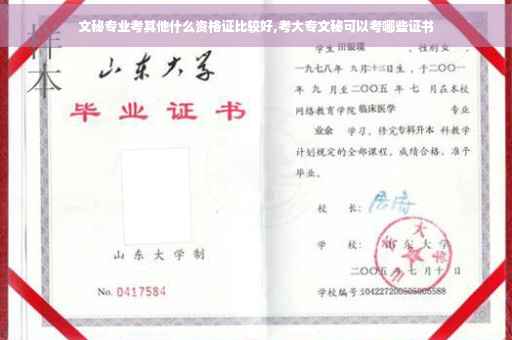 文秘专业考其他什么资格证比较好,考大专文秘可以考哪些证书
样本
山东大学
毕业证书
山东大学制
No. 0417584
学生 田银瑞 ,性别女,
一九七八年 九月十三日生,于二〇〇一
年 九 月至二〇〇五 年 七 月在本校
网络教育学院 临床医学 专业
业余 学习,修完专科升本科教学
计划规定的全部课程,成绩合格,准予
毕业。
校 长:
学 校: 山东大学
二〇〇五年七月十日
学校编号: